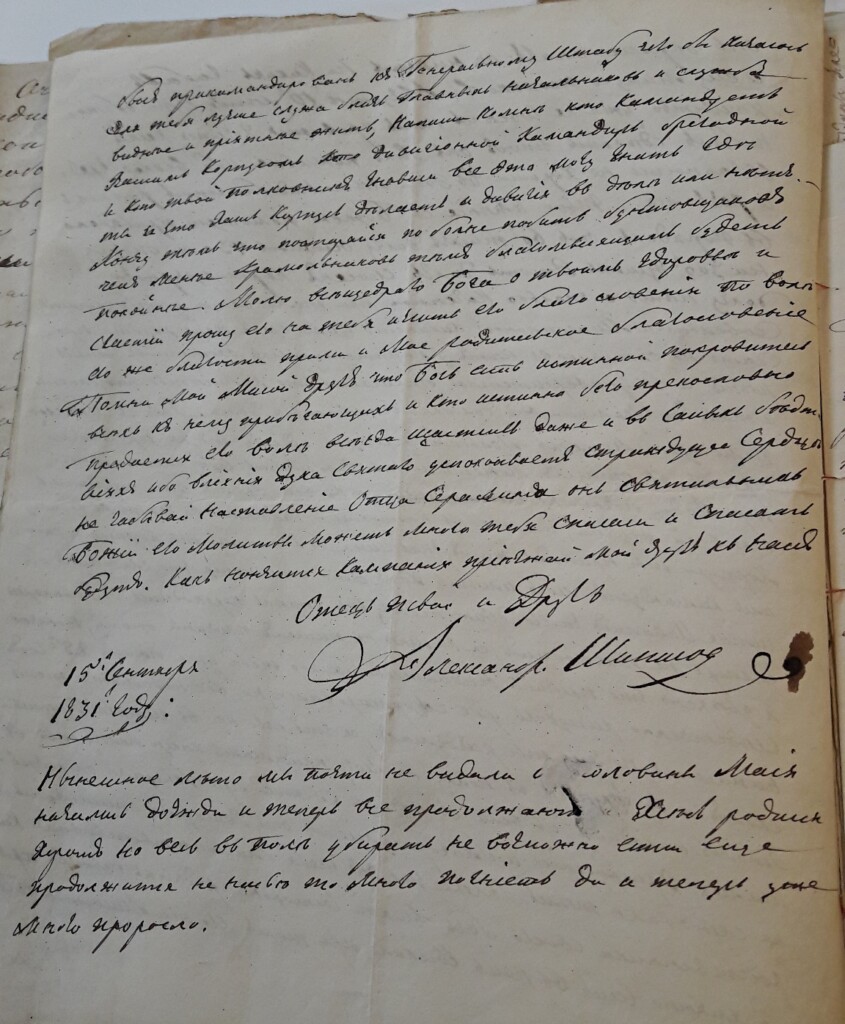 былъ прикамандированъ къ Генеральному Штабу чево бы казалось
для тебя лучше служа близъ главныхъ начальниковъ и служба
виднѣе и пріятнѣе жить, напиши комнѣ кто камандуетъ
вашимъ Корпусомъ кто дивизіонной Камандиръ бригадной
и кто твой полковникъ знавши все это могу знать гдѣ
ты и что вашъ Корпусъ дѣлаетъ и дивизія въ дѣлѣ или нѣтъ.
тѣмъ что постарайся по болѣе побить бунтовщиковъ
чемъ менѣе крамольниковъ тѣмъ благомыслящимъ будетъ
покойнѣе. Молю всещедраго Бога о твоемъ здоровьѣ и
щастіи прошу его на тебя излить его благословеніи по волѣ
его же благости прими и мое родительское благословеніе
Помни мой милой другъ что Богъ есть истинной покровитель
всехъ къ нему прибѣгающихъ и кто истинно безъ прекословно
предается его волѣ всегда щастливъ даже и въ самыхъ бѣдст
віяхъ ибо влеяніи духа святаго успокоиваетъ страждущее сердце
не забывай наставленіе Отца Серафима онъ святильникъ
Божій его молитвы можетъ много тебя спасали и спасать
будутъ. Какъ кончится кампанія пріезжай мой другъ къ намъ
Отецъ твой и Другъ
Александръ Шипилов
15го Сентября
1831го Году:
Нынешное лѣто мы почти не видали с половины Маія
начались дожди и теперь все продолжаютъ Хлебъ родился
хорошъ но весь въ полѣ убирать не возможно естли еще
продолжится не настье то много погніетъ да и теперь уже
много проросло.